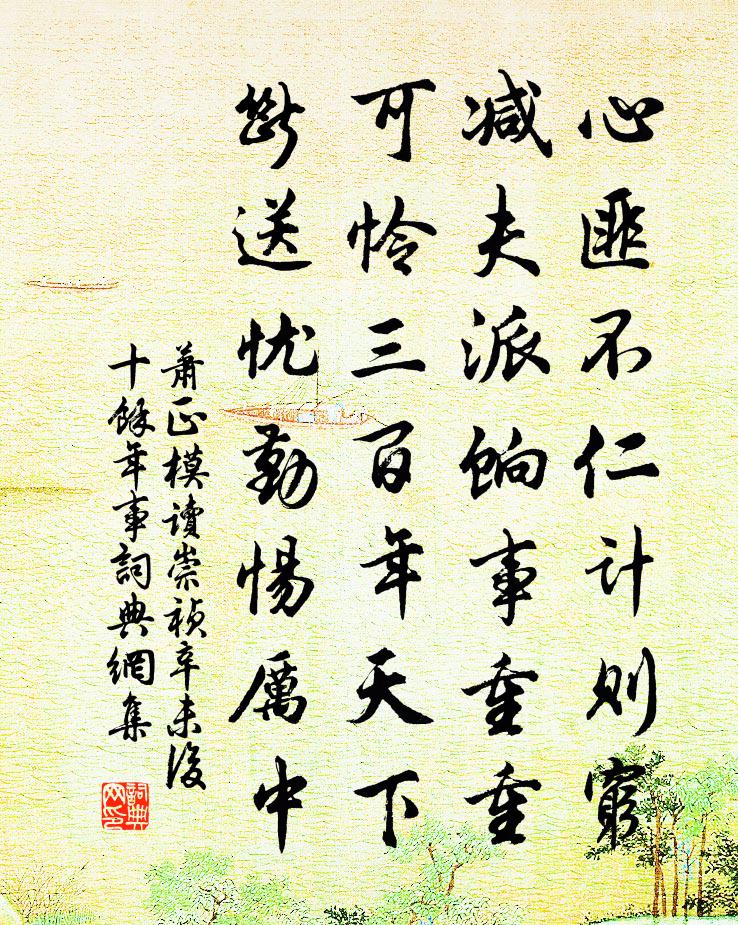 心匪不仁计则穷
减夫派饷事重重
可怜三百年天下
断送忧勤惕厲中
萧正模读崇祯辛未後
十餘年事詞典網集
詞典網印